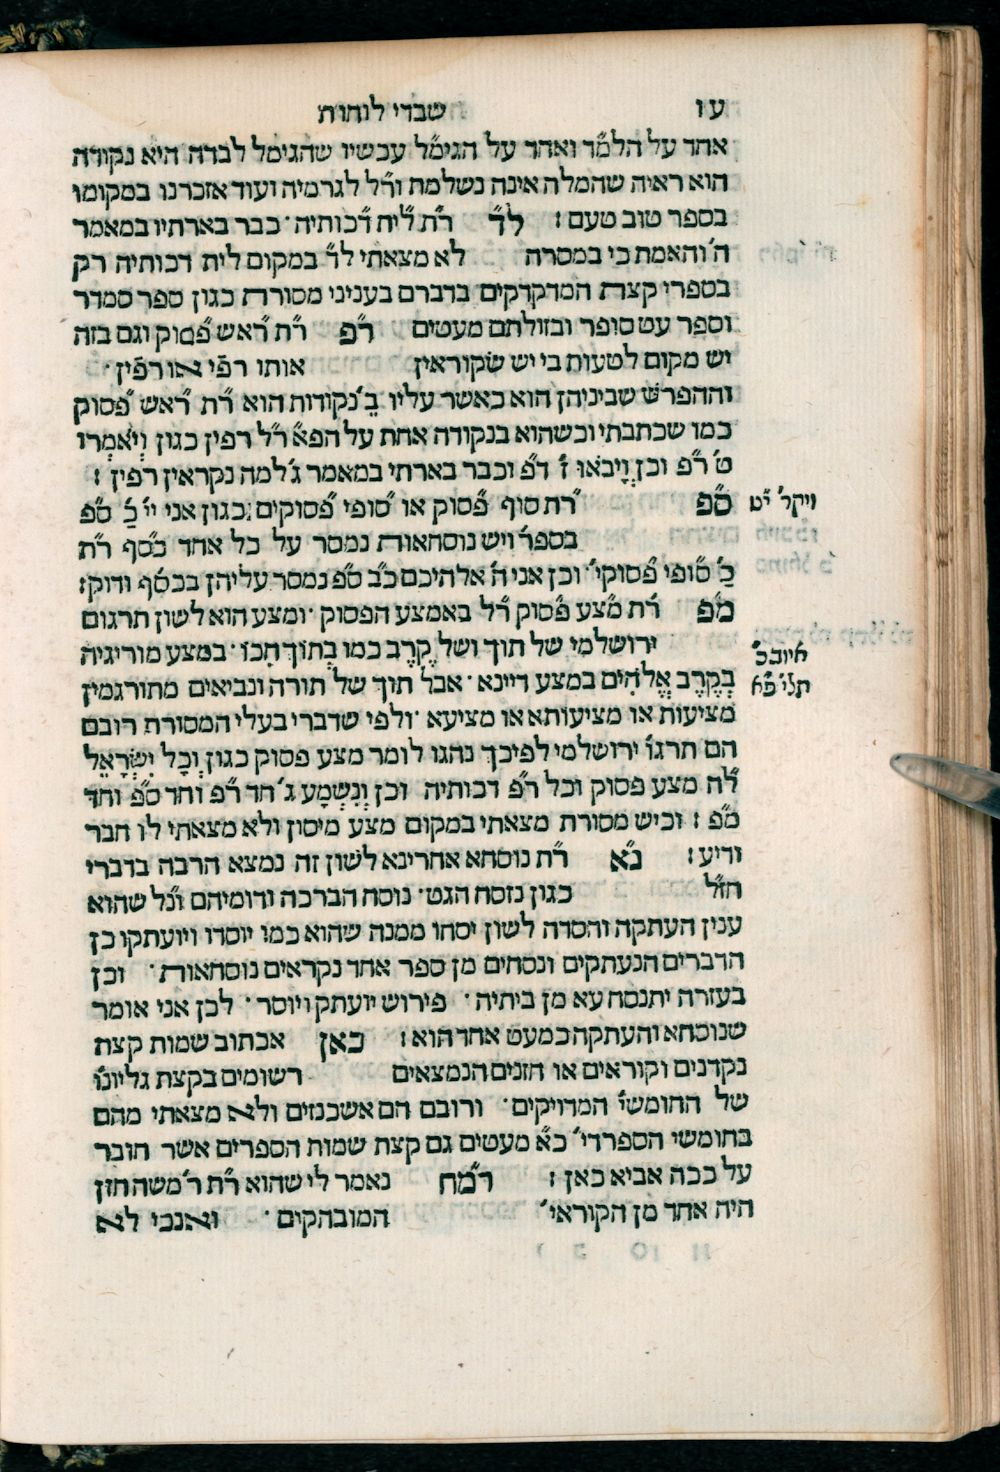 עו שברי לוחות
אחד על הלמ״ד ואחד על הגימ״ל עכשיו שהגימל לבדה היא נקודה
הוא ראיה שהמלה אינה נשלמת ור״ל לגרמיה ועוד אזכרנו במקומו
בספר טוב טעם : לד״ ר״ת ל״ית ד״כותיה · כבר בארתיו במאמר
ה׳ והאמת כי במסרה לא מצאתי לד״ במקום לית דכותיה רק
בספרי קצת המדקדקים בדברם בעניני מסורת כגון ספר סמדר
וספר עט סופר ובזולתם מעטים ר״פ ר״ת ר״אש פ״סוק וגם בזה
יש מקום לטעות כי יש שקוראין אותו רפ֗י או רפ֗ין ·
וההפרש שביניהן הוא כאשר עליו ב׳ נקודות הוא ר״ת ר״אש פ״סוק
כמו שכתבתי וכשהוא בנקודה אחת על הפ״א ר״ל רפין כגון וְיֹאמְרוּ
ט׳ ר״פ וכן וְיָבֹאוּ ז׳ ד״פ וכבר בארתי במאמר ג׳ למה נקראין רפין :
ס״פ ר״ת סוף פ״סוק או ס״ופי פ״סוקים ; כגון אני י״י כ״ ס״פ
ויקר׳ י״ט
בספר׳ ויש נוסחאות נמסר על כל אחד כ״סף ר״ת
כ״ ס״ופי פ״סוקי׳ · וכן אני ה׳ אלהיכם כ״ב ס״פ נמסר עליהן בכסף ודוק :
מ״פ ר״ת מ״צע פ״סוק ר״ל באמצע הפסוק · ומצע הוא לשון תרגום
ירושלמי של תוך ושל קֶרֶב כמו בְתוֹךְ חִכּוֹ · במצע מוריגיה
איוב כ׳
בְקֶרֶב אֱלֹהִים במצע דיינא · אבל תוך של תורה ונביאים מתורגמין
תלי׳ פ״א
מציעות או מציעותא או מציעא · ולפי שדברי בעלי המסורת רובם
הם תרגו׳ ירושלמי לפיכך נהגו לומר מצע פסוק כגון וְכָל יִשְׂרָאֵל
ל״ה מצע פסוק וכל ר״פ דכותיה וכן וְנִשְׁמָע ג׳ חד ר״פ וחד ס״פ וחד
מ״פ : וביש מסורת מצאתי במקום מצע מיסון ולא מצאתי לו חבר
ודיע : נ״א ר״ת נוסחא אחרינא לשון זה נמצא הרבה בדברי
חז״ל כגון נוסח הגט · נוסח הברכה ודומיהם ונ״ל שהוא
ענין העתקה והסרה לשון יסחו ממנה שהוא כמו יוסרו ויועתקו כן
הדברים הנעתקים ונסחים מן ספר אחד נקראים נוסחאות · וכן
בעזרה יתנסח עא מן ביתיה · פירוש יועתק ויוסר · לכן אני אומר
שנוסחא והעתקה כמעט אחד הוא : כאן אכתוב שמות קצת
נקדנים וקוראים או חזנים הנמצאים רשומים בקצת גליונו׳
של החומשי׳ המדויקים · ורובם הם אשכנזים ולא מצאתי מהם
בחומשי הספרדי׳ כ״א מעטים גם קצת שמות הספרים אשר חובר
על ככה אביא כאן : רמ״ח נאמר לי שהוא ר״ת ר׳ משה חזן
היה אחד מן הקוראי׳ המובהקים · ואנכי לא